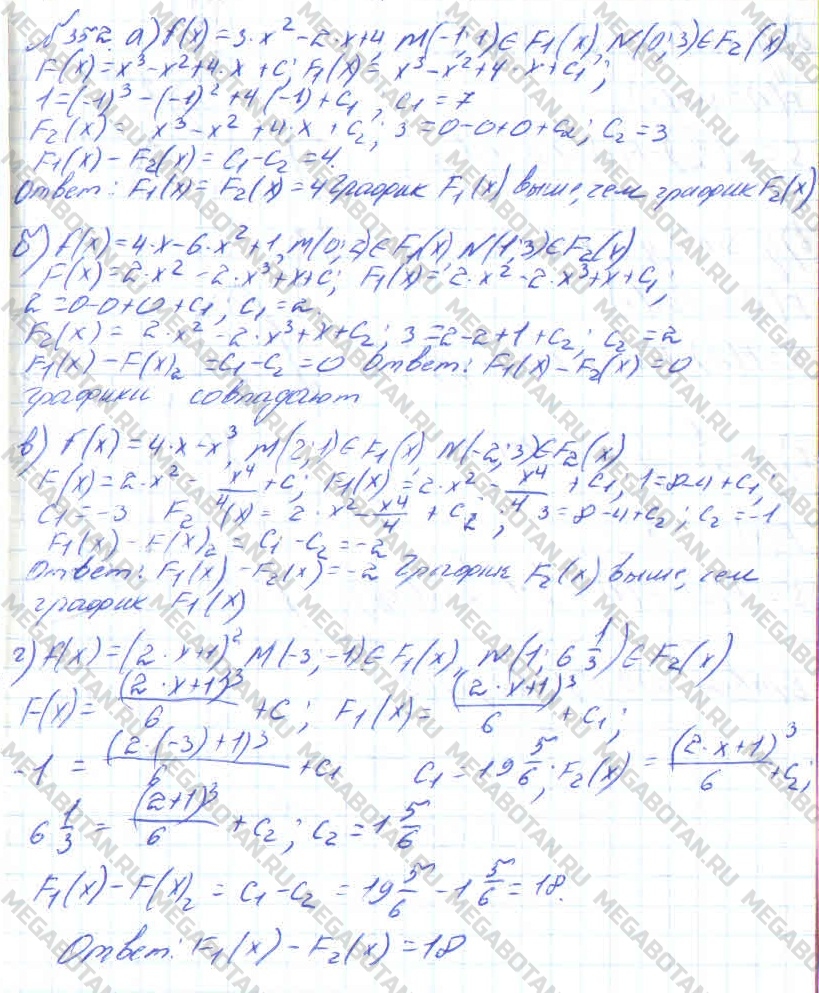 № 352. а) f(x) = 3·x² - 2·x + 4, M(-1; 1) ∈ F₁(x), N(0; 3) ∈ F₂(x)
F(x) = x³ - x² + 4·x + C; F₁(x) = x³ - x² + 4·x + C₁;
1 = (-1)³ - (-1)² + 4(-1) + C₁, C₁ = 7
F₂(x) = x³ - x² + 4·x + C₂; 3 = 0 - 0 + 0 + C₂; C₂ = 3
F₁(x) - F₂(x) = C₁ - C₂ = 4.
Ответ: F₁(x) = F₂(x) = 4 График F₁(x) выше, чем график F₂(x)
б) f(x) = 4·x - 6·x² + 1, M(0; 2) ∈ F₁(x) N(1; 3) ∈ F₂(x)
F(x) = 2·x² - 2·x³ + x + C; F₁(x) = 2·x² - 2·x³ + x + C₁;
2 = 0 - 0 + 0 + C₁; C₁ = 2.
F₂(x) = 2·x² - 2·x³ + x + C₂; 3 = 2 - 2 + 1 + C₂; C₂ = 2
F₁(x) - F(x)₂ = C₁ - C₂ = 0 Ответ: F₁(x) - F₂(x) = 0
графики совпадают
в) f(x) = 4·x - x³, M(2; 1) ∈ F₁(x), N(-2; 3) ∈ F₂(x)
F(x) = 2·x² - x⁴/4 + C; F₁(x) = 2·x² - x⁴/4 + C₁; 1 = 8 - 4 + C₁;
C₁ = -3 F₂(x) = 2·x² - x⁴/4 + C₂; 3 = 8 - 4 + C₂; C₂ = -1
F₁(x) - F(x)₂ = C₁ - C₂ = -2
Ответ: F₁(x) - F₂(x) = -2 График F₂(x) выше, чем
график F₁(x)
г) f(x) = (2·x + 1)² M(-3; -1) ∈ F₁(x), N(1; 6 1/3) ∈ F₂(x)
F(x) = (2·x + 1)³/6 + C; F₁(x) = (2·x + 1)³/6 + C₁;
-1 = (2·(-3) + 1)³/6 + C₁ C₁ = 19 5/6; F₂(x) = (2·x + 1)³/6 + C₂;
6 1/3 = (2 + 1)³/6 + C₂; C₂ = 1 5/6
F₁(x) - F(x)₂ = C₁ - C₂ = 19 5/6 - 1 5/6 = 18.
Ответ: F₁(x) - F₂(x) = 18
MEGABOTAN.RU